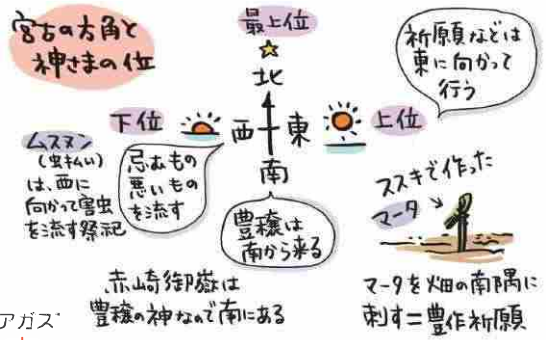 宮古の方角と
神さまの位
最上位
北
祈願などは
東に向かって
行う
下位
西
東
上位
南
ムスヌン
(虫払い)
は、西に
向かって害虫
を流す祭祀
忌むもの
悪いもの
を流す
豊穣は
南から来る
ススキで作った
マータ
赤崎御嶽は
豊穣の神なので南にある
マータを畑の南隅に
刺す=豊作祈願
アガス